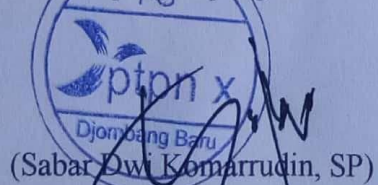 ptpn x
Djombang Baru
(Sabar Dwi Komarrudin, SP)